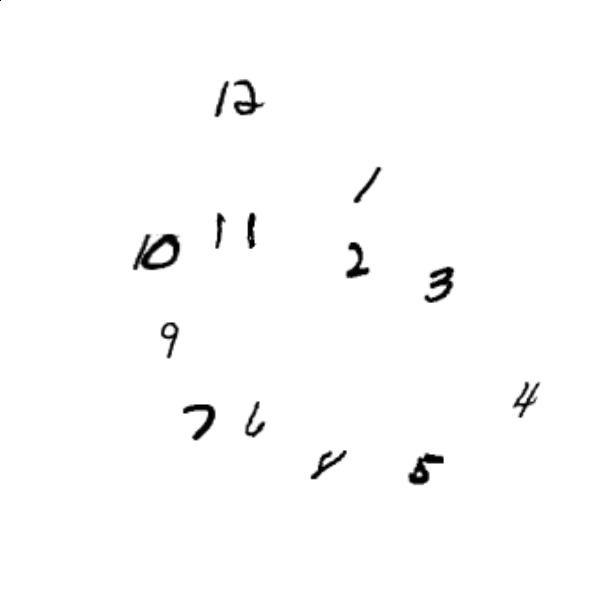 12
1
10 11 2 3
9
4
7 6
8 5